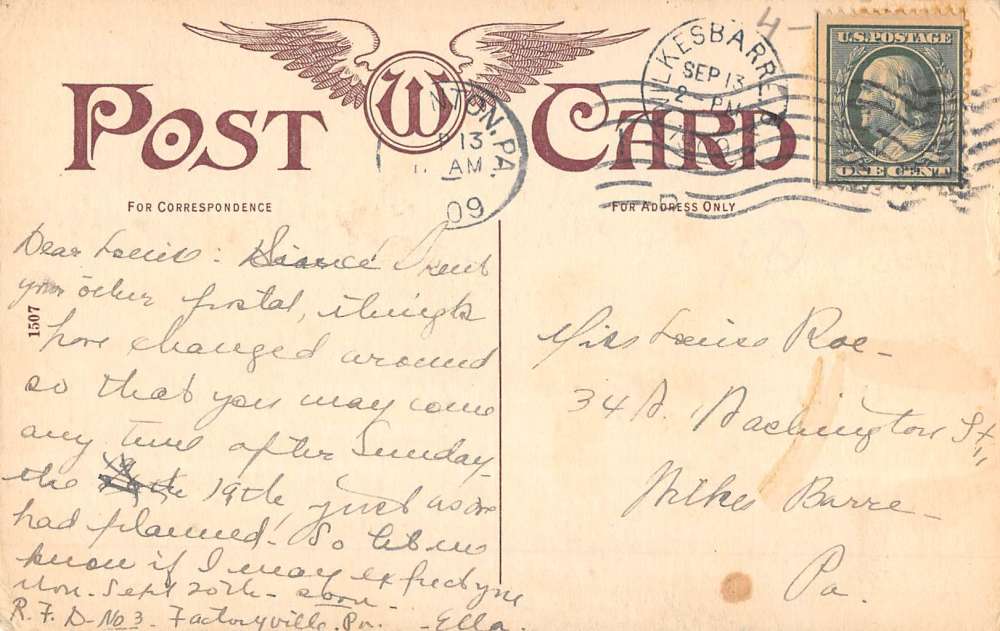 POST W CARD
FOR CORRESPONDENCE
FOR ADDRESS ONLY
NTON, PA.
P 13
AM
09
WILKESBARRE
SEP 13
2 - PM
4 -
U.S. POSTAGE
ONE CENT
1507
Dear Louise: Since I sent
your other postal, things
have changed around
so that you may come
any time after Sunday
the 19th, just as we
had planned. So let me
know if I may expect you
Mon. Sept 20th - soon -
R. F. D - No 3 - Factoryville. Pa. - Ella.
Miss Louise Roe -
34 N. Washington St,
Wilkes Barre -
Pa.